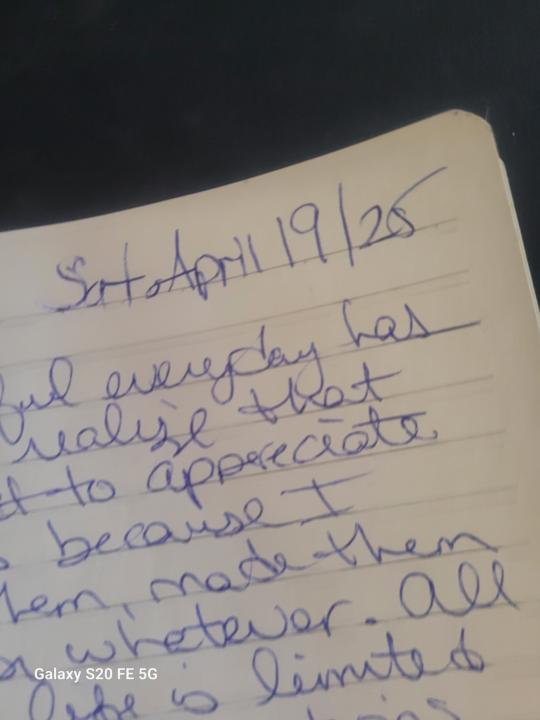 Sat. April 19/25
ful everyday has
realize that
to appreciate
because I
them, made them
whatever. All
life is limited
Galaxy S20 FE 5G